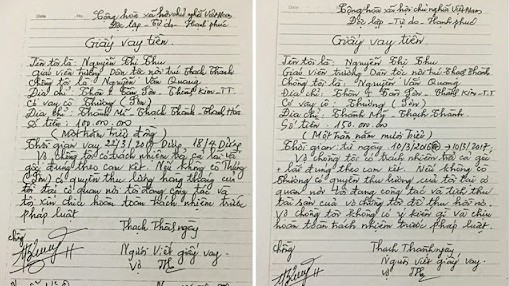 Cộng hòa xã hội chủ nghĩa Việt Nam
Độc lập - Tự do - Hạnh phúc
Giấy vay tiền
Tên tôi là: Nguyễn Thị Thu
Giáo viên trường Dân tộc nội trú Thạch Thành
Chồng tôi là: Nguyễn Văn Quang
Địa chỉ: Thôn 2 Tân Sơn - Thành Kim - TT
Có vay cô Thường (Sơn)
Địa chỉ: Thành Mỹ - Thạch Thành - Thanh Hóa
Số tiền: 100.000.000
(Một trăm triệu đồng)
Thời gian vay 22/3/
Vợ chồng tôi có trách nhiệm trả cả lãi và
gốc đúng theo cam kết. Nếu không cô Thường
có quyền thu lương hàng tháng của
tôi tại cơ quan nơi tôi đang công tác và
tôi xin chịu hoàn toàn trách nhiệm trước
pháp luật
Thạch Thành ngày
chồng Người viết giấy vay
Vợ
Cộng hòa xã hội chủ nghĩa Việt Nam
Độc lập - Tự do - Hạnh phúc
Giấy vay tiền
Tên tôi là: Nguyễn Thị Thu
Giáo viên trường Dân tộc nội trú Thạch Thành
Chồng tôi là: Nguyễn Văn Quang
Địa chỉ: Thôn 2 Tân Sơn - Thành Kim - T.T
Có vay cô - Thường (Sơn)
Địa chỉ: Thành Mỹ - Thạch Thành
Số tiền: 150.000.000
(Một trăm năm mươi triệu)
Thời gian từ ngày 10/3/2016 10/3/2017
Vợ chồng tôi có trách nhiệm trả cả gốc
+ lãi đúng theo cam kết. Nếu không cô
Thường có quyền thu lương của tôi tại cơ
quan nơi tôi đang công tác và
tài sản của vợ chồng tôi để thu hồi nợ.
Vợ chồng tôi không có ý kiến gì và chịu
hoàn toàn trách nhiệm trước pháp luật.
Thạch Thành ngày
chồng Người viết giấy vay
Vợ